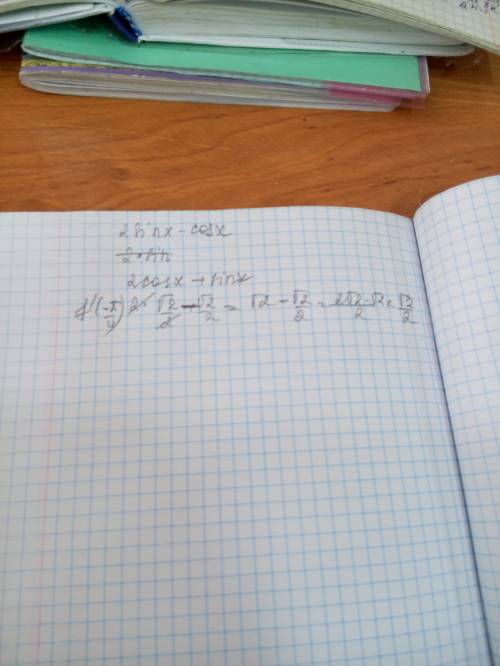 2sinx - cosx
2·sin
2cosx + sinx
f'(-π/4) 2· √2/2 - √2/2 = √2 - √2/2 = 2√2-√2/2 = √2/2